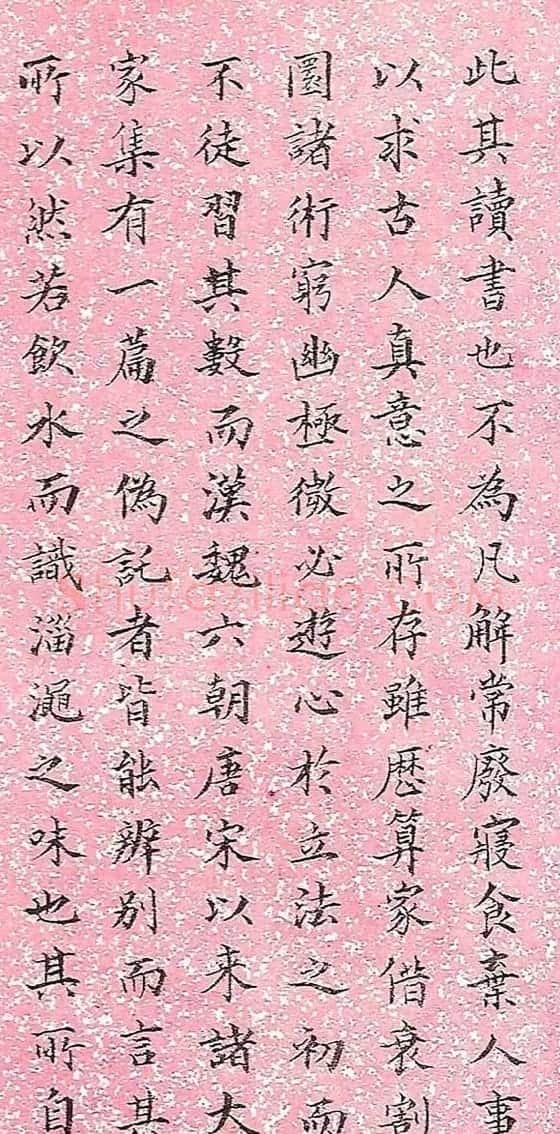 此其讀書也不為凡解常廢寢食棄人事
以求古人真意之所存雖歷算家借衰割
圜諸術窮幽極微必遊心於立法之初而
不徒習其數而漢魏六朝唐宋以来諸大
家集有一篇之偽託者皆能辨別而言其
所以然若飲水而識淄澠之味也其所自